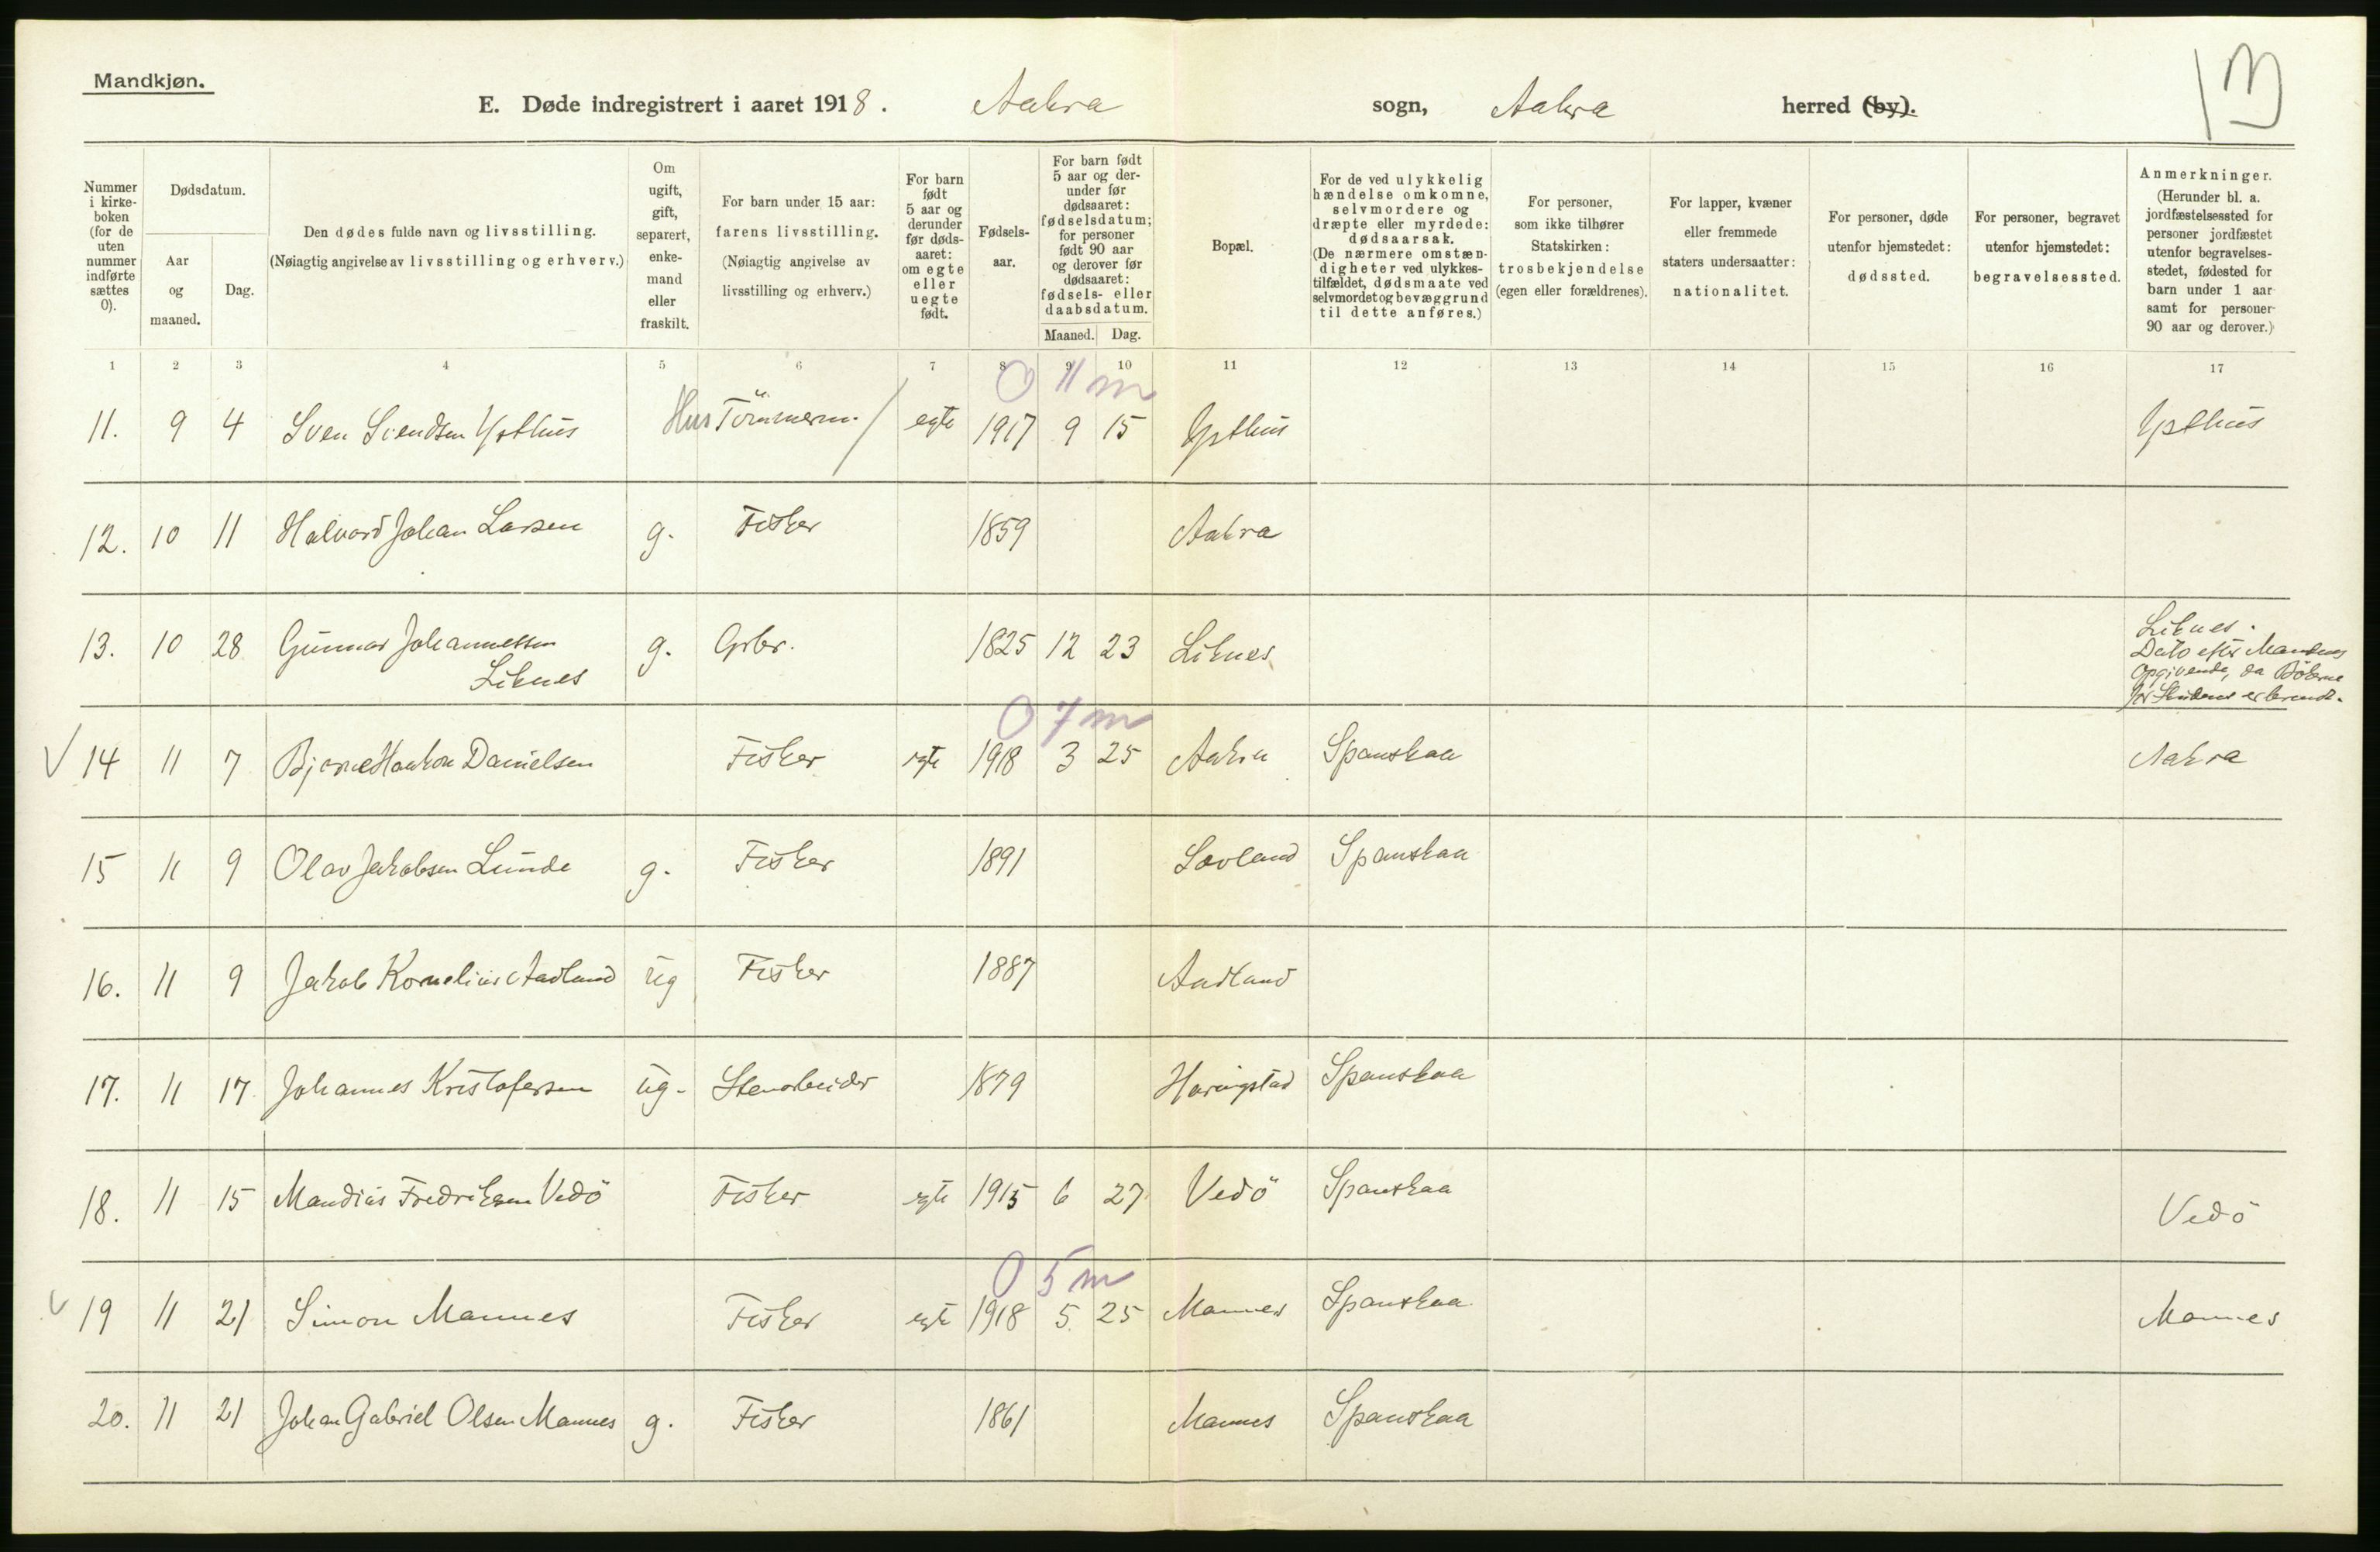 Mandkjøn.
E. Døde indregistrert i aaret 1918. Aakra sogn, Aakra herred (by).
Nummer i kirkeboken (for de uten nummer indførte sættes 0).
Dødsdatum.
Aar og maaned.
Dag.
Den dødes fulde navn og livsstilling.
(Nøiagtig angivelse av livsstilling og erhverv.)
Om ugift, gift, separert, enkemand eller fraskilt.
For barn under 15 aar: farens livsstilling. (Nøiagtig angivelse av livsstilling og erhverv.)
For barn født 5 aar og derunder før dødsaaret: om egte eller uegte født.
Fødselsaar.
For barn født 5 aar og derunder før dødsaaret: fødselsdatum; for personer født 90 aar og derover før dødsaaret: fødsels- eller daabsdatum.
Maaned. Dag.
Bopæl.
For de ved ulykkelig hændelse omkomne, selvmordere og dræpte eller myrdede: dødsaarsak. (De nærmere omstændigheter ved ulykkestilfældet, dødsmaate ved selvmordet og bevæggrund til dette anføres.)
For personer, som ikke tilhører Statskirken: trosbekjendelse (egen eller forældrenes).
For lapper, kvæner eller fremmede staters undersaatter: nationalitet.
For personer, døde utenfor hjemstedet: dødssted.
For personer, begravet utenfor hjemstedet: begravelsessted.
Anmerkninger. (Herunder bl. a. jordfæstelsessted for personer jordfæstet utenfor begravelsesstedet, fødested for barn under 1 aar samt for personer 90 aar og derover.)
1 2 3 4 5 6 7 8 9 10 11 12 13 14 15 16 17
0 11 m
11. 9 4 Sven Svendsen Ypthus Hus Tömmerm. egte 1917 9 15 Ypthus Ypthus
12. 10 11 Halvard Johan Larsen g. Fisker 1859 Aakra
13. 10 28 Gunnar Johannessen Liknes g. Grbr. 1825 12 23 Liknes Liknes. Dato efter Mandens Opgivende, da Bökerne for Skudenes er brændt.
0 7 m
14 11 7 Bjarne Haakon Danielsen Fisker egte 1918 3 25 Aakra Spanskaa Aakra
15 11 9 Olav Jakobsen Lunde g. Fisker 1891 Sævland Spanskaa
16. 11 9 Jakob Kornelius Aadland ug Fisker 1887 Aadland
17. 11 17 Johannes Kristofersen ug. Stenarbeider 1879 Haringstad Spanskaa
18. 11 15 Mandius Fredriksen Vedö Fisker egte 1915 6 27 Vedö Spanskaa Vedö
0 5 m
19 11 21 Simon Mannes Fisker egte 1918 5 25 Mannes Spanskaa Mannes
20. 11 21 Johan Gabriel Olsen Mannes g. Fisker 1861 Mannes Spanskaa